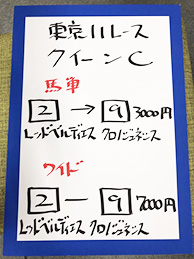 東京11レース
クイーンC
馬単
2 → 9 3000円
レッドベルディエス クロノジェネシス
ワイド
2 — 9 7000円
レッドベルディエス クロノジェネシス